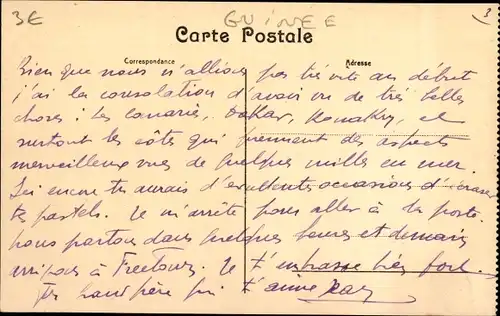 3€
GUINEE
3
Carte Postale
Correspondance
Adresse
Bien que nous n'allions pas très vite au début
j'ai la consolation d'avoir vu de très belles
choses : les Canaries, Dakar, Konakry, et
surtout les côtes qui prennent des aspects
merveilleux vues de quelques milles en mer.
Ici encore tu aurais d'excellentes occasions d'écraser
tes pastels. Je m'arrête pour aller à la poste.
Nous partons dans quelques heures et demain
arrivons à Freetown. Je t'embrasse très fort.
Ton grand père qui t'aime